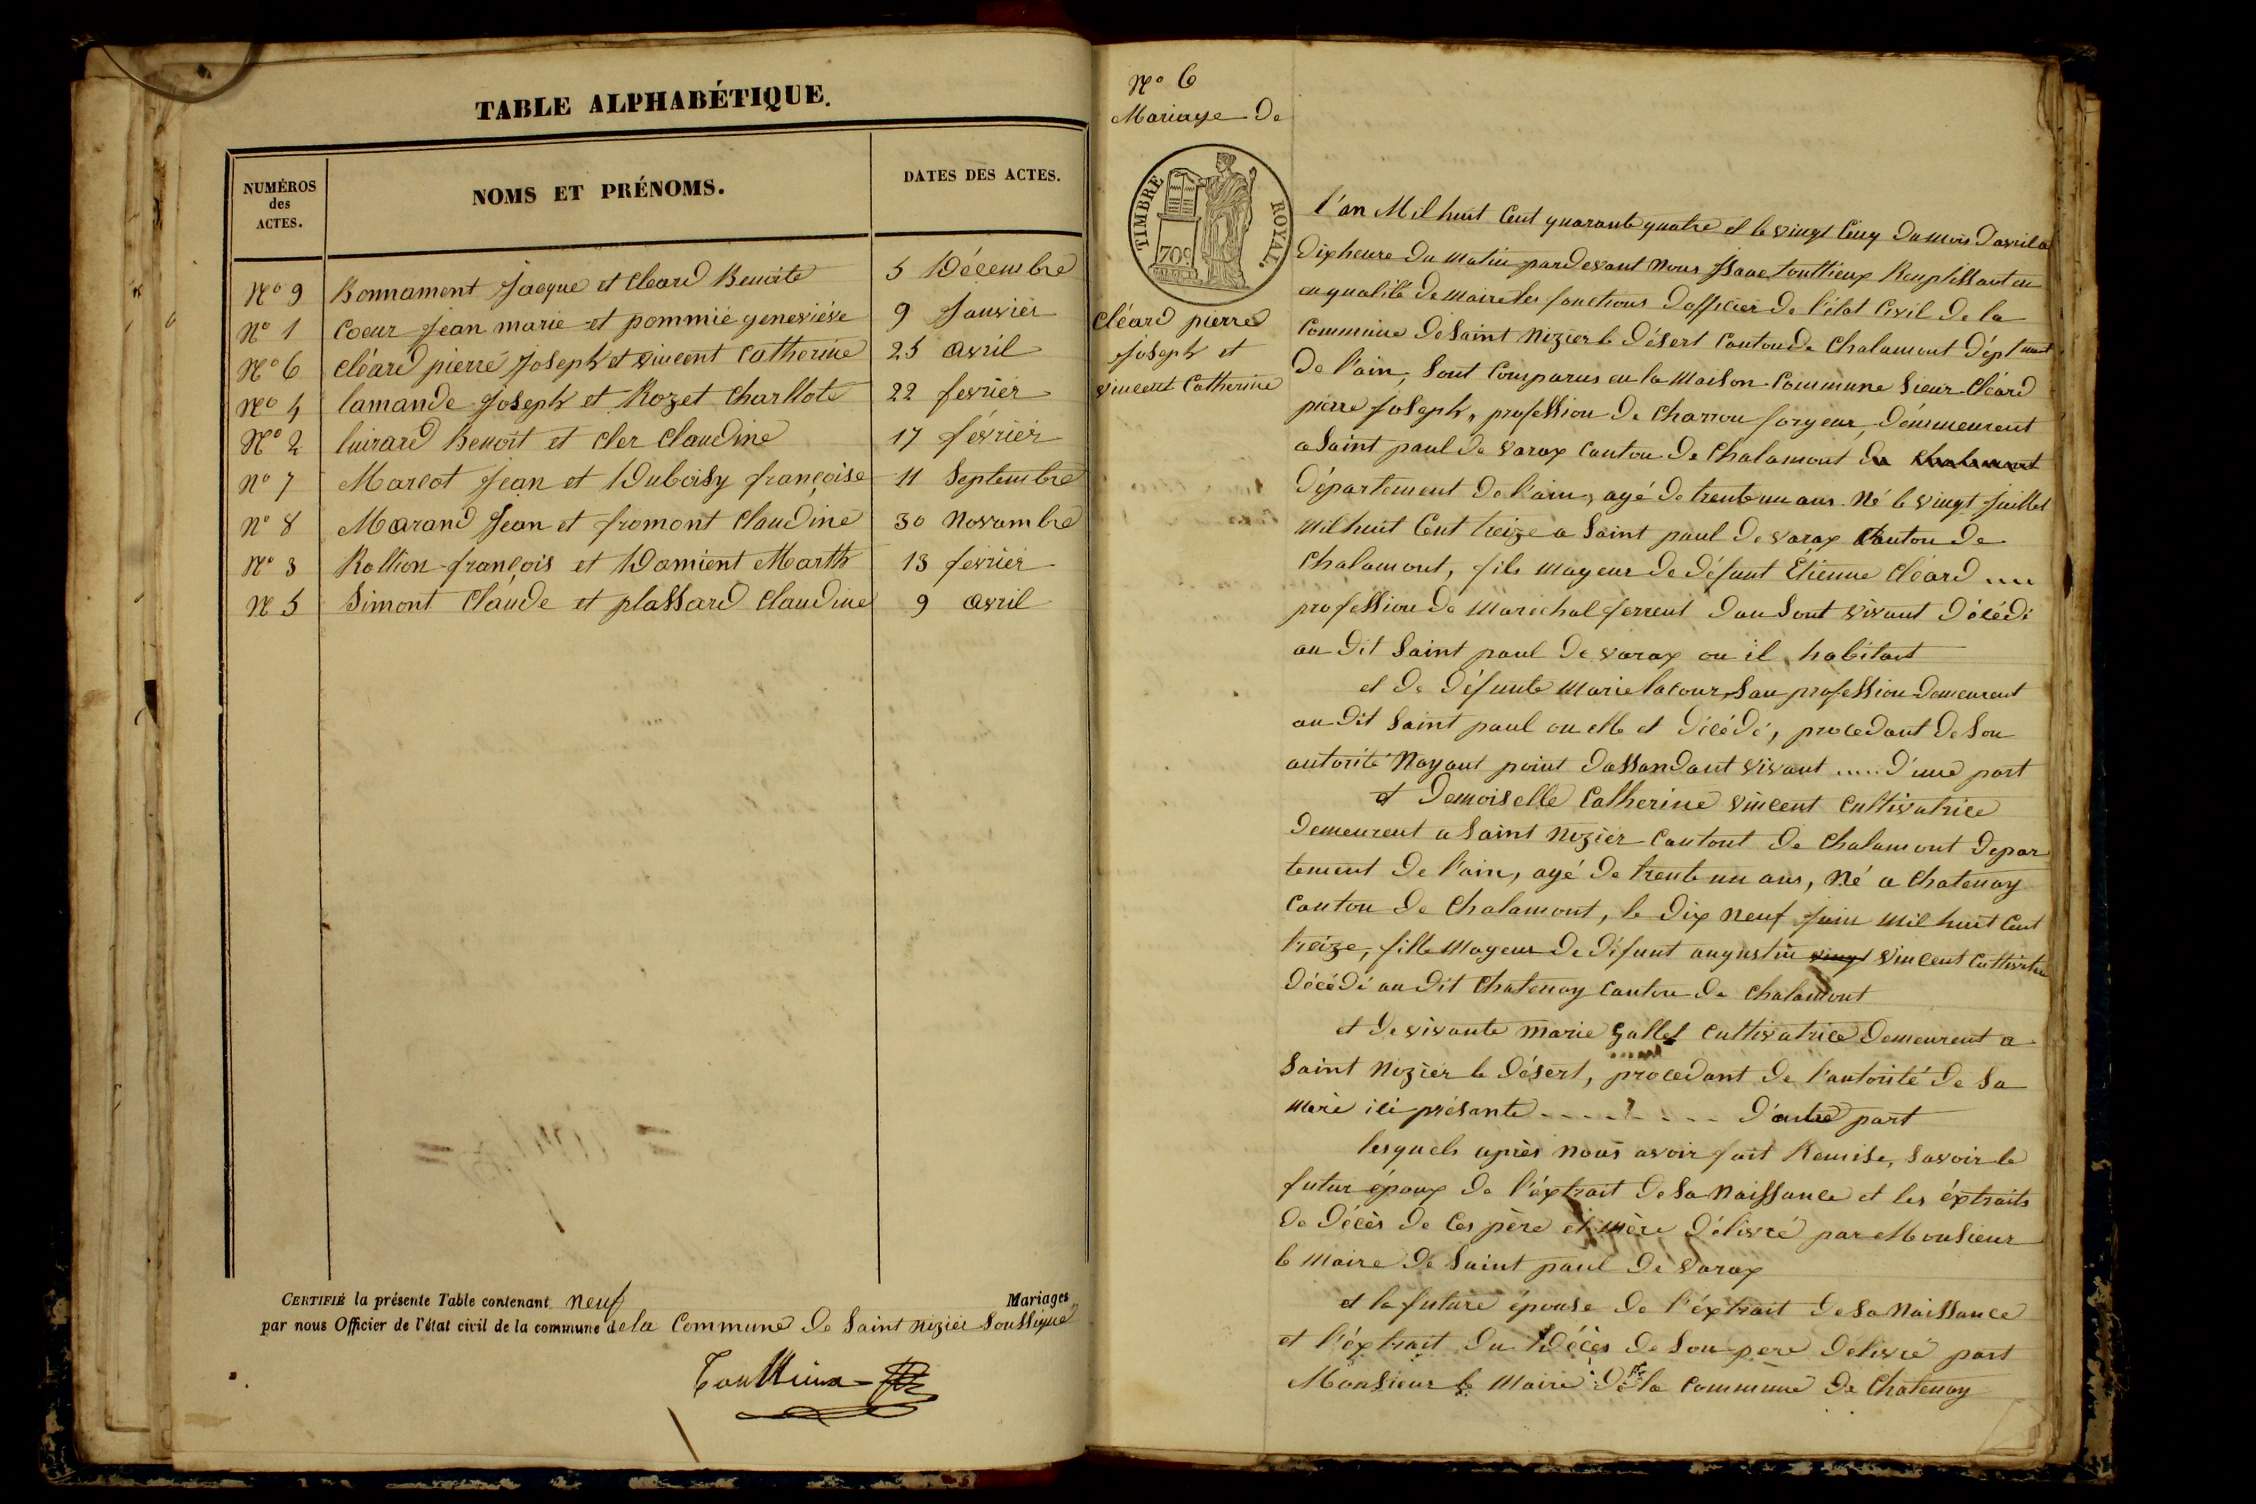 TABLE ALPHABÉTIQUE.
NUMÉROS des ACTES. NOMS ET PRÉNOMS. DATES DES ACTES.
N° 9 Bonnament Jacque et Cléard Benoite 5 Décembre
N° 1 Coeur Jean marie et pommié geneviéve 9 Janvier
N° 6 cléard pierre Joseph et vincent Catherine 25 avril
N° 4 lamande Joseph et Rozet Charllote 22 fevrier
N° 2 luirard Benoit et Cler Claudine 17 février
n° 7 Marcot Jean et Duboisy françoise 11 Septembre
n° 8 Marand Jean et fromont Claudine 30 Novambre
N° 3 Rollion françois et Damient Marth 13 fevrier
N 5 Simont Claude et plassard Claudine 9 avril
CERTIFIÉ la présente Table contenant neuf Mariages,
par nous Officier de l'état civil de la commune de la Commune de Saint nizier Soussigné
N° 6
Mariage de
TIMBRE ROYAL.
70c
Cléard pierre
Joseph et
vincent Catherine
l'an Mil huit Cent quarante quatre et le vingt Cinq du mois d'avril a
dix heure du matin pardevant nous Isaac Touttieux Remplissant en
en qualité de maire les fonctions d'officier de l'état Civil de la
Commune de Saint Nizier le désert Canton de Chalamont dépt ment
de l'ain, Sont Comparus en la Maison Commune Sieur Cléard
pierre Joseph, profession de Charron forgeur, démeurent
a Saint paul de varax Canton de Chalamont de Chalamont
département de l'ain, agé de trente un ans. Né le vingt Juillet
mil huit Cent treize a Saint paul de varax Canton de
Chalamont, fils mageur de défunt Étienne Cléard ....
profession de Maréchal ferrent dan Sont vivant décédé
au dit Saint paul de varax ou il habitait
et de défunte Marie lacour, San profession demeurent
au dit Saint paul ou elle et décédé, procedant de Son
autorité Nayant point dassandant vivant ..... d'une part
et demoiselle Catherine vincent Cultivatrice
demeurent a Saint nizier Cantont de Chalamont depar
tement de l'ain, agé de trente un ans, Né a Chatenay
Canton de Chalamont, le dix neuf Juin mil huit Cent
treize, fille mageur de défunt augustin vingt vincent Cultivateur
décédé au dit Chatenay Canton de Chalamont
et de vivante marie gallet Cultivatrice demeurent a
Saint nizier le désert, procedant de l'autorité de Sa
mère ici présante - - - - - - - - d'autre part
lesquels après nous avoir fait Remise, Savoir le
futur époux de l'éxtrait de Sa Naissance et les éxtraits
de décès de Ces père et mère délivré par Monsieur
le maire de Saint paul de varax
et la future épouse de l'éxtrait de Sa Naissance
et l'éxtrait du décès de Son pere délivré part
Monsieur le Maire de la Commune de Chatenay